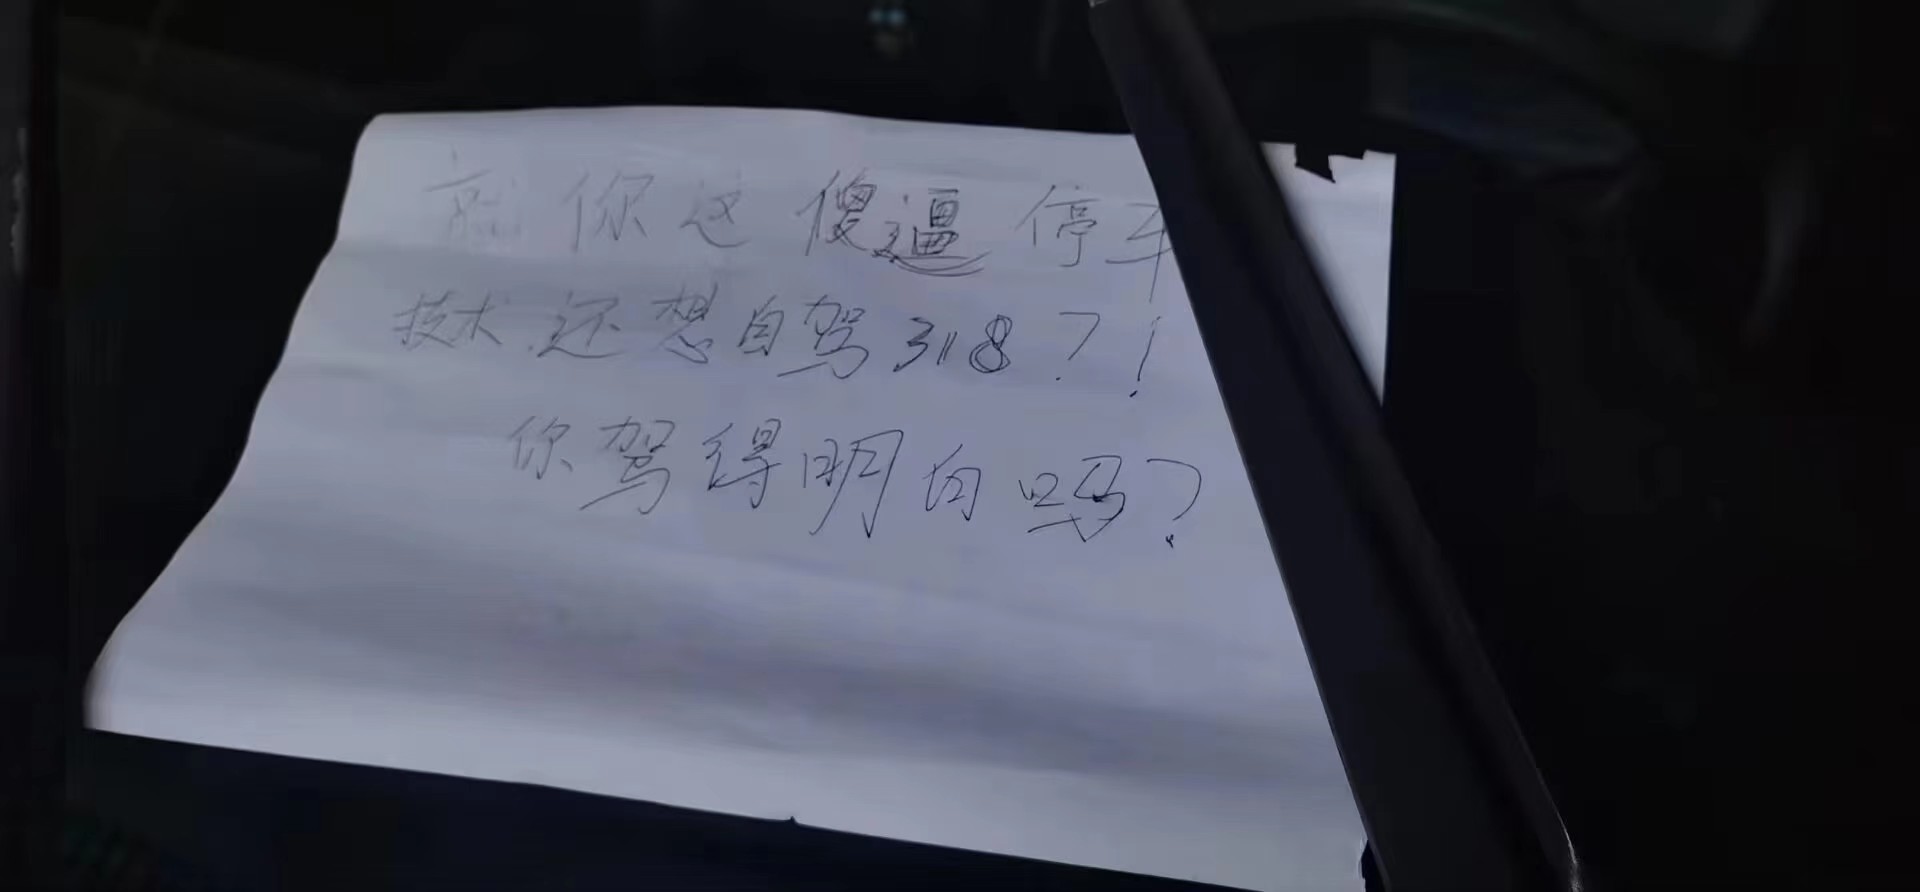 就你这傻逼停车
技术还想自驾318?!
你驾得明白吗?